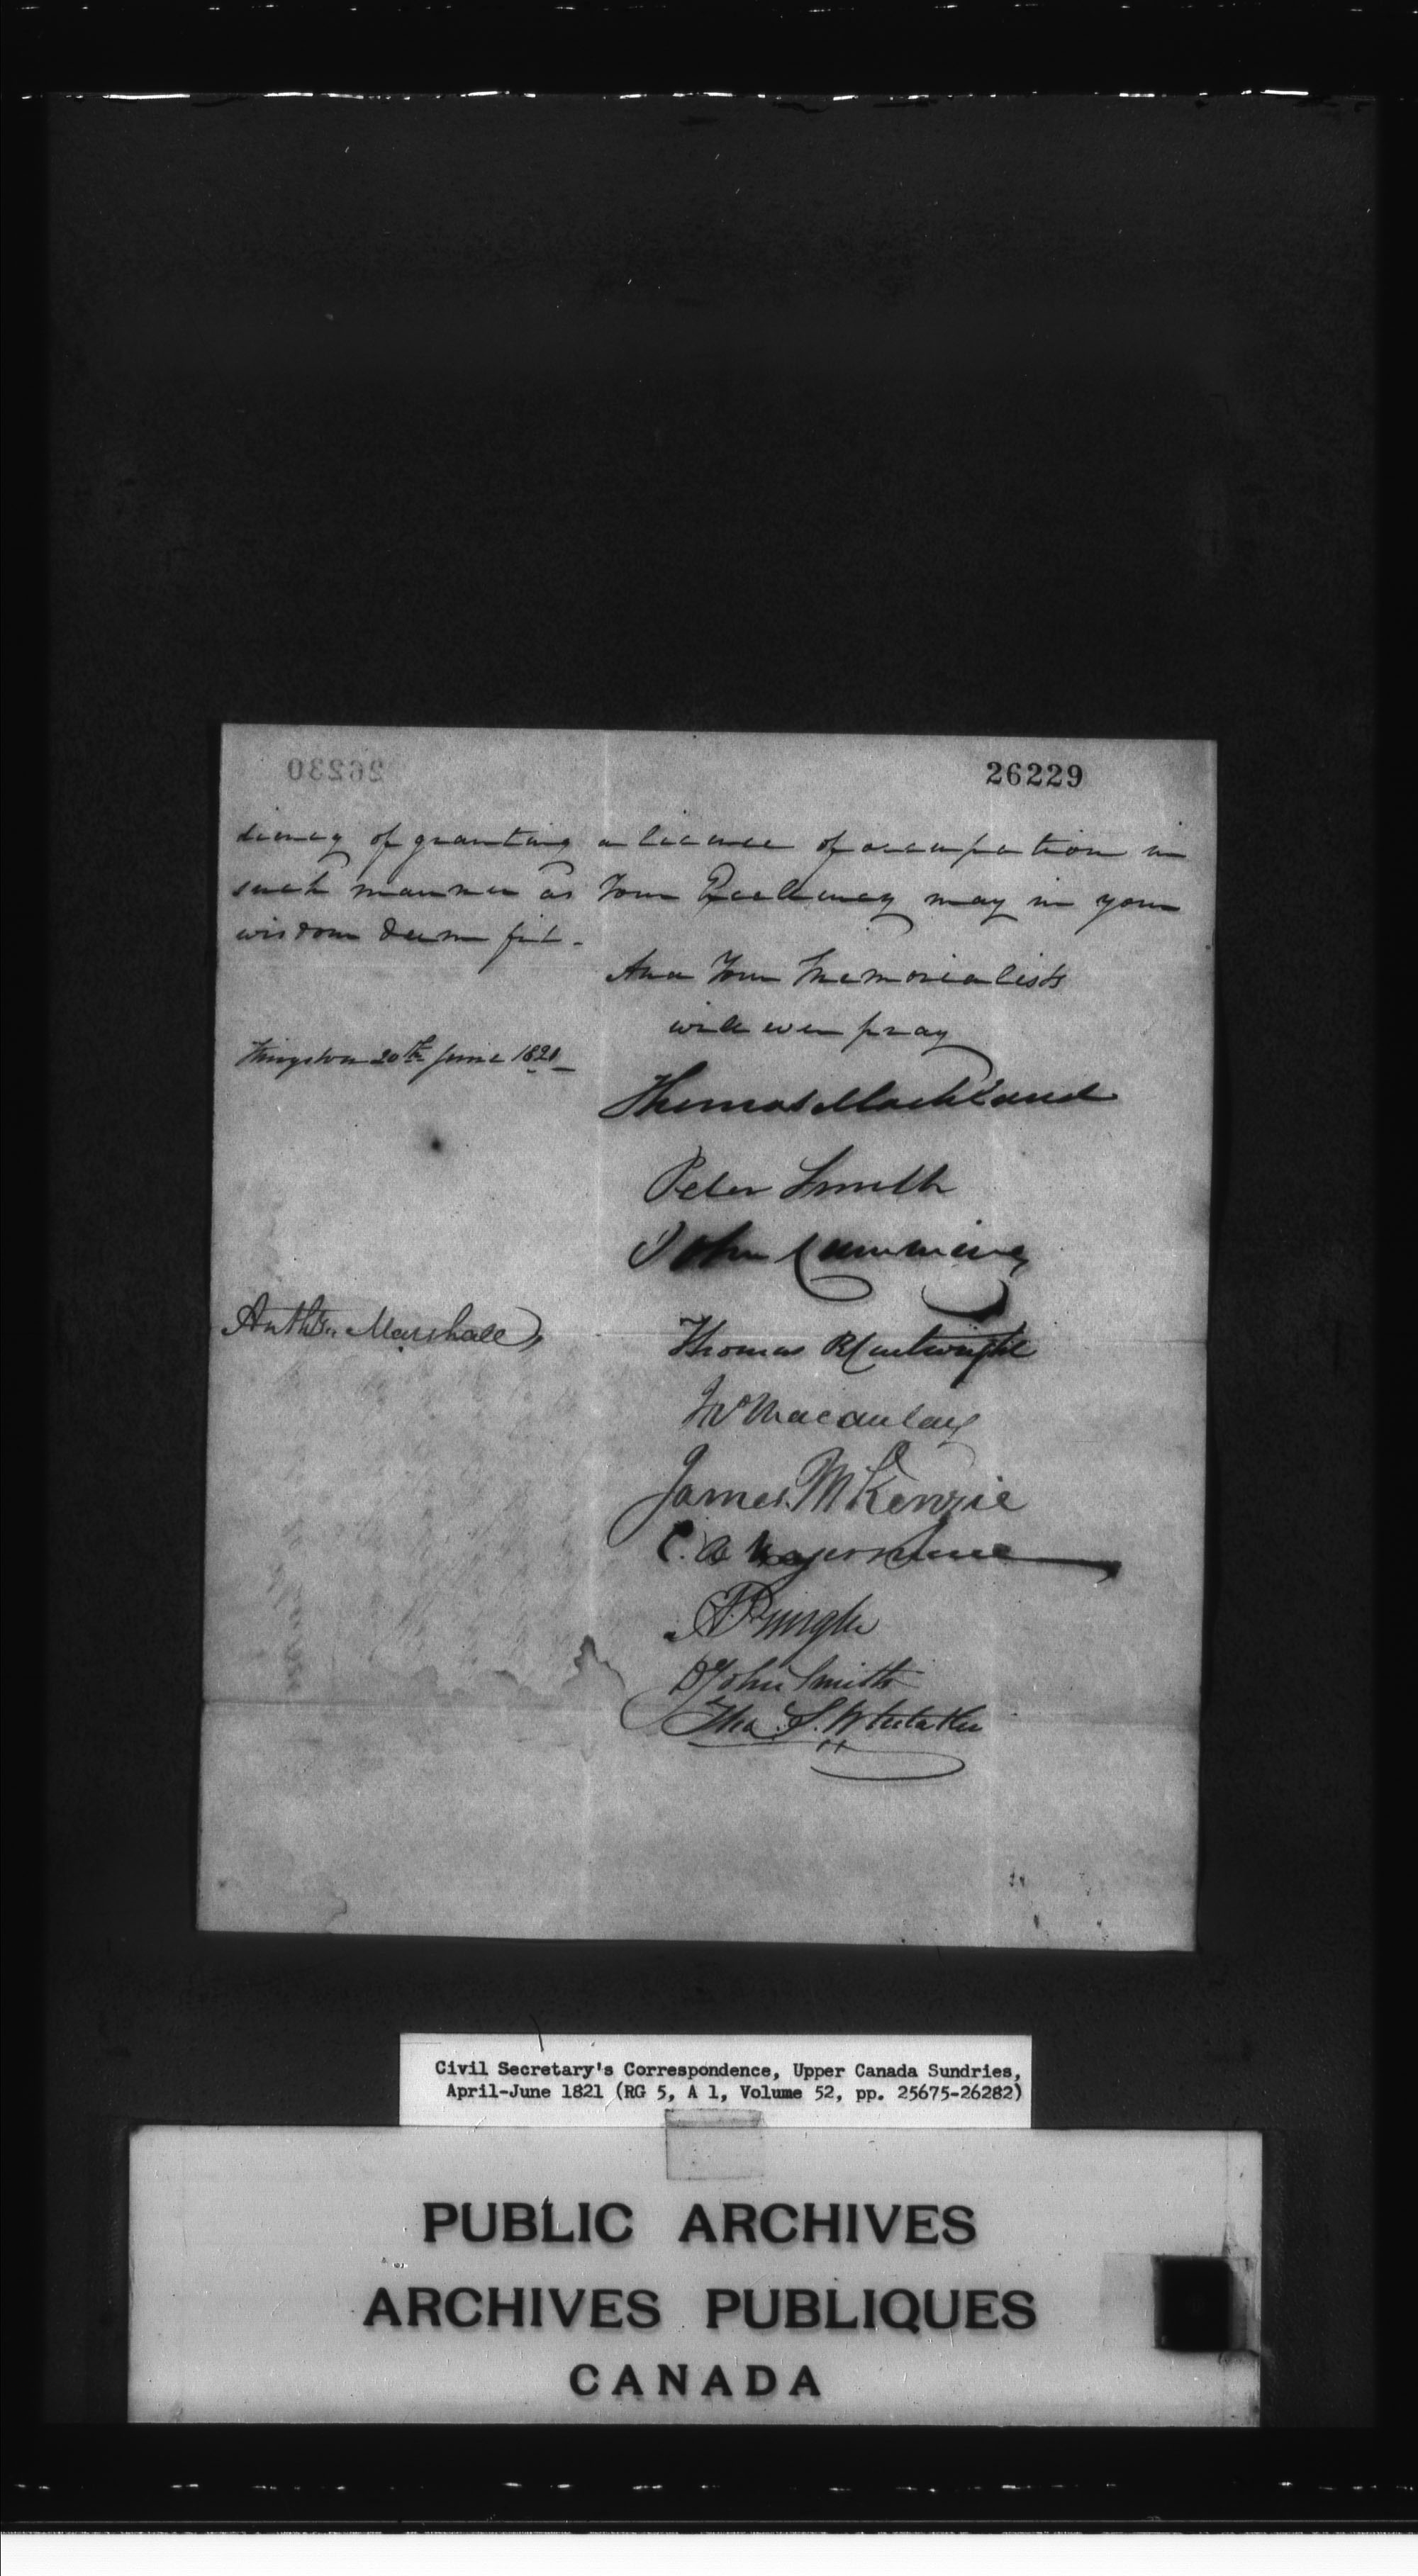 26229
26230
diency of granting a licence of occupation in
such manner as Your Excellency may in your
wisdom deem fit.
And Your Memorialists
will ever pray
Kingston 20th June 1821
Thomas Markland
Peter Smith
John Cumming
Anthy. Marshall
Thomas R Cartwright
Jno Macaulay
James McKenzie
C. A Hagerman
A Pringle
D John Smith
Tho. S. Whitaker
Civil Secretary's Correspondence, Upper Canada Sundries,
April-June 1821 (RG 5, A 1, Volume 52, pp. 25675-26282)
PUBLIC ARCHIVES
ARCHIVES PUBLIQUES
CANADA